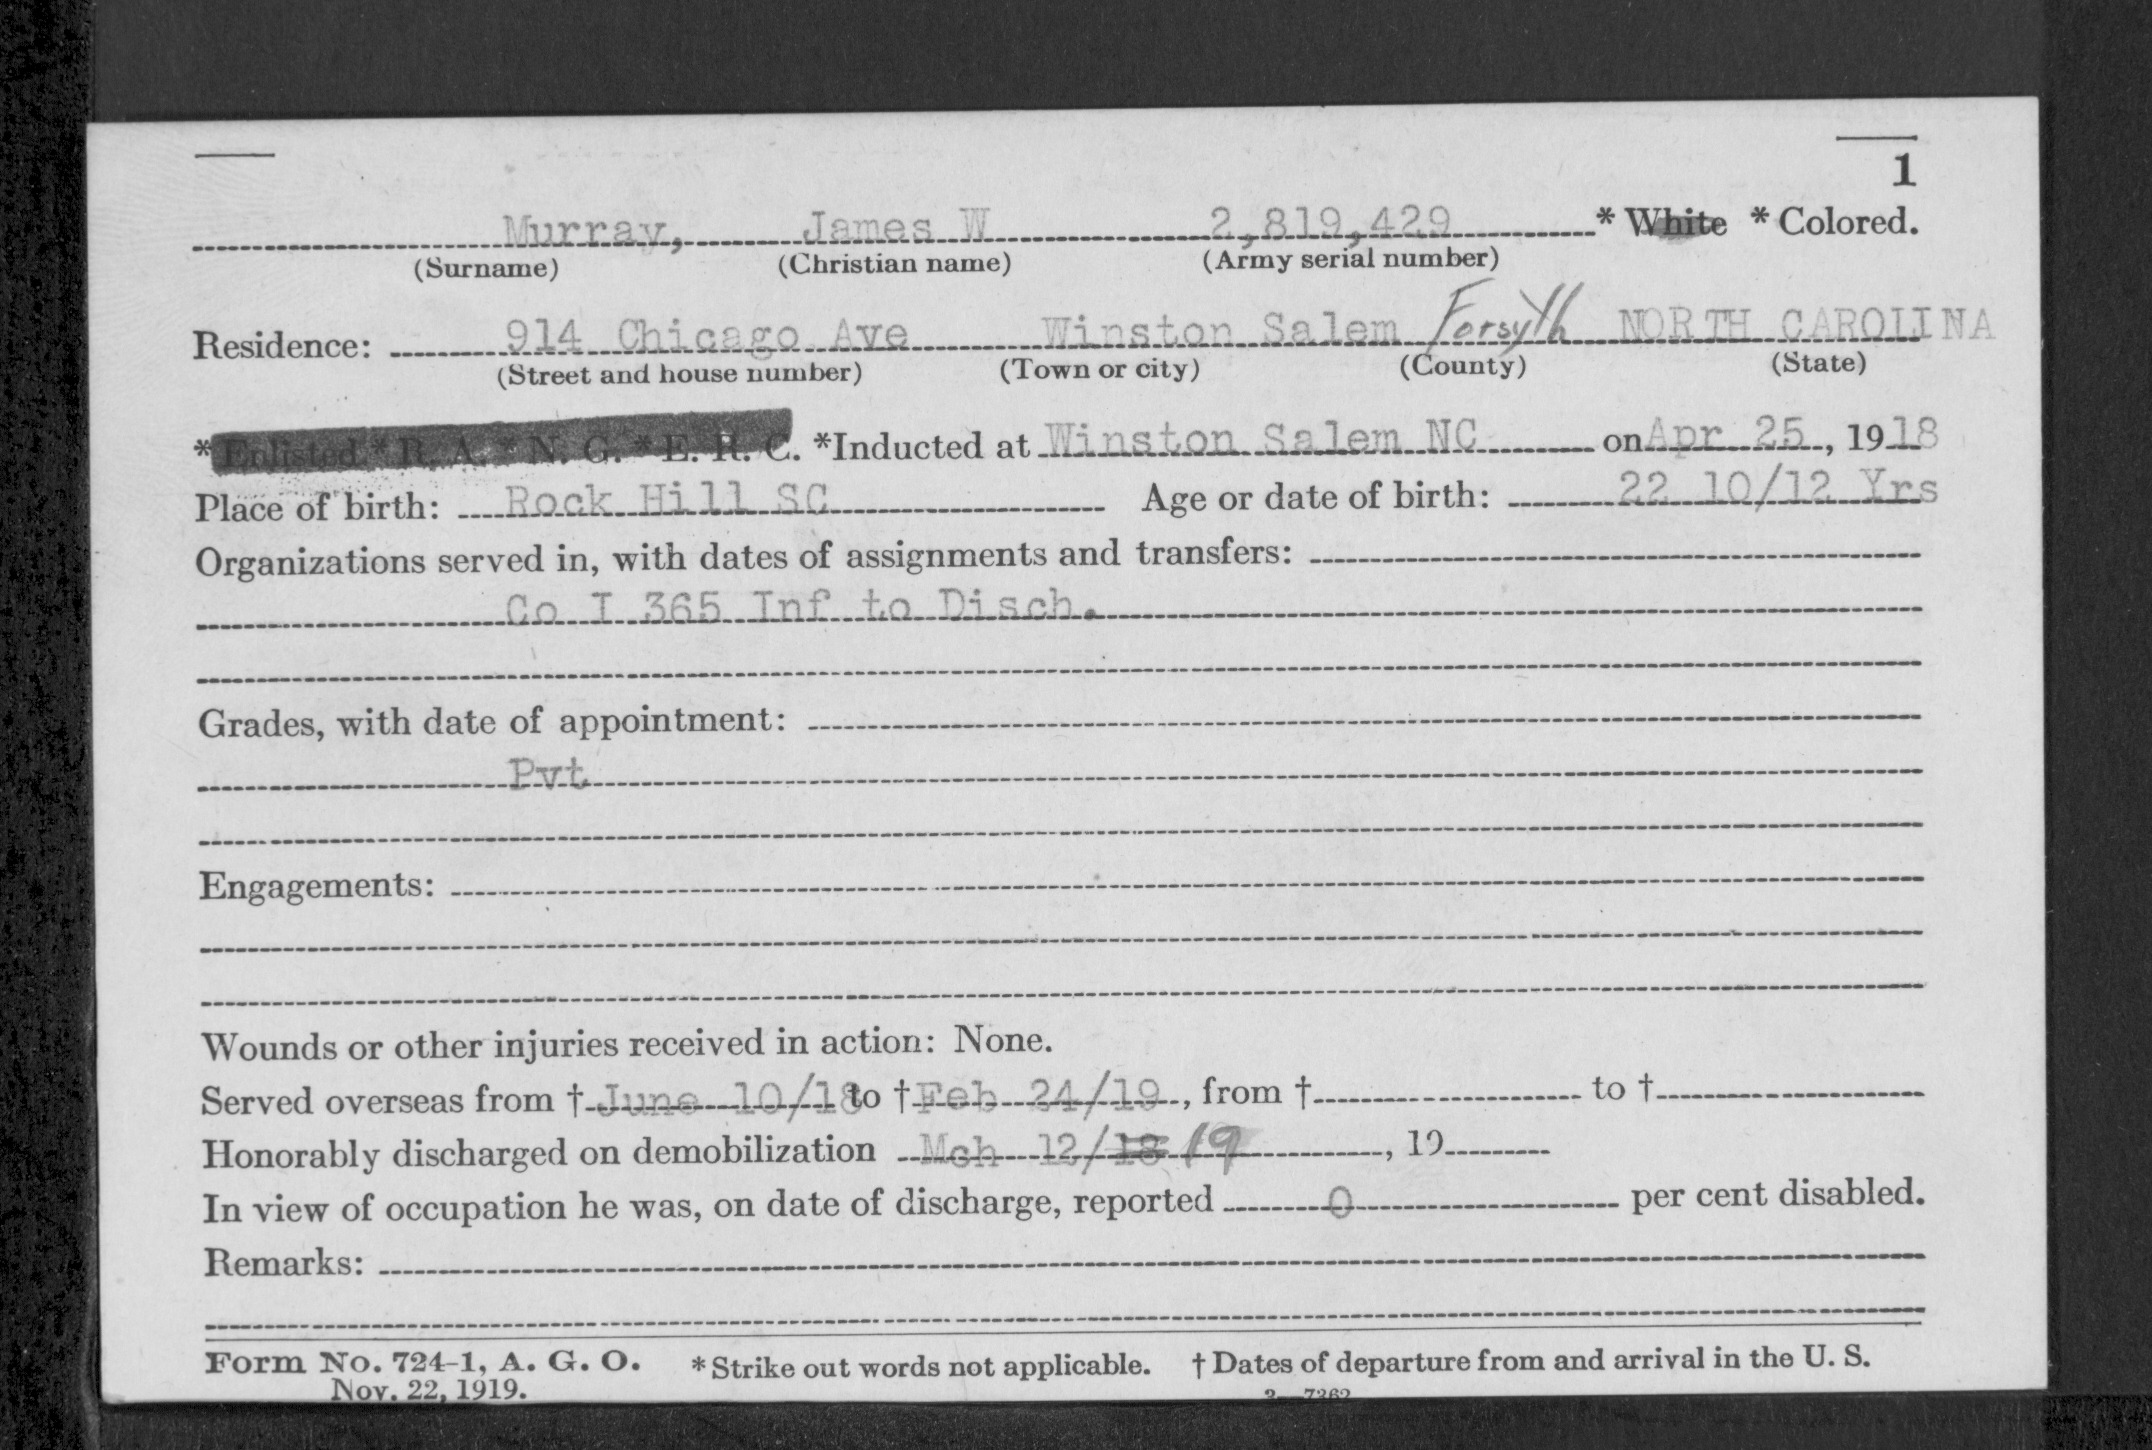 1
Murray, James W 2,819,429 * White * Colored.
(Surname) (Christian name) (Army serial number)
Residence: 914 Chicago Ave Winston Salem Forsyth NORTH CAROLINA
(Street and house number) (Town or city) (County) (State)
* Enlisted * R. A. * N. G. * E. R. C. *Inducted at Winston Salem NC on Apr 25, 1918
Place of birth: Rock Hill SC Age or date of birth: 22 10/12 Yrs
Organizations served in, with dates of assignments and transfers:
Co I 365 Inf to Disch.
Grades, with date of appointment:
Pvt
Engagements:
Wounds or other injuries received in action: None.
Served overseas from † June 10/18 to † Feb 24/19, from † to †
Honorably discharged on demobilization Mch 12/18 19, 19
In view of occupation he was, on date of discharge, reported 0 per cent disabled.
Remarks:
Form No. 724-1, A. G. O. * Strike out words not applicable. † Dates of departure from and arrival in the U. S.
Nov. 22, 1919. 3—7362